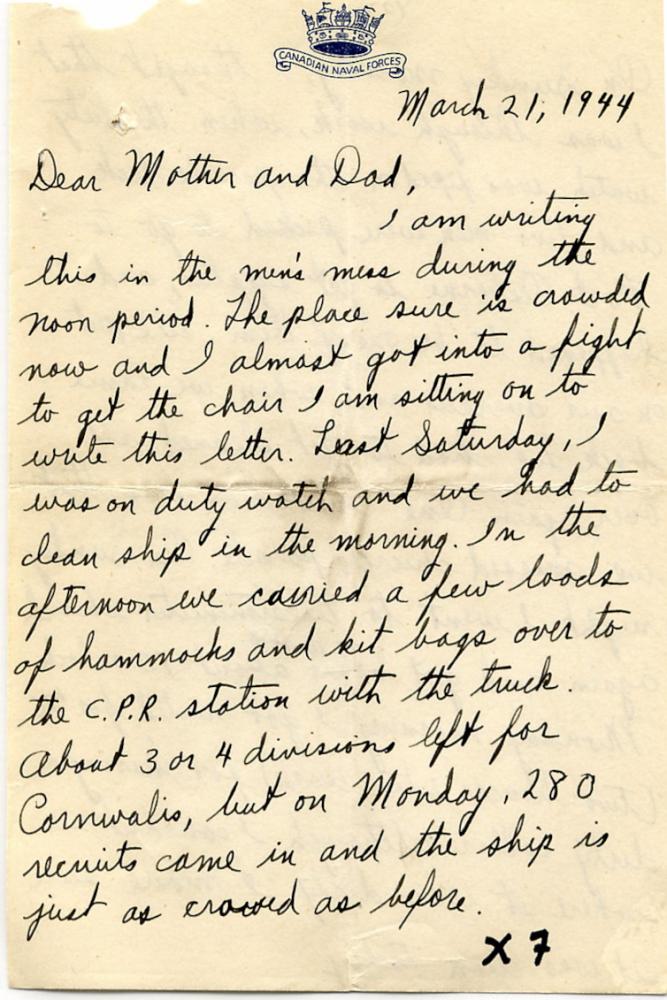 CANADIAN NAVAL FORCES
March 21, 1944
Dear Mother and Dad,
I am writing
this in the men's mess during the
noon period. The place sure is crowded
now and I almost got into a fight
to get the chair I am sitting on to
write this letter. Last Saturday, I
was on duty watch and we had to
clean ship in the morning. In the
afternoon we carried a few loads
of hammocks and kit bags over to
the C.P.R. station with the truck.
About 3 or 4 divisions left for
Cornwalis, but on Monday, 280
recruits came in and the ship is
just as crowed as before.
X7